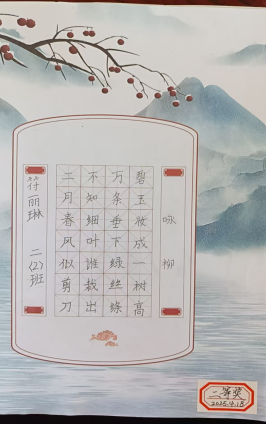 咏柳
碧玉妆成一树高
万条垂下绿丝绦
不知细叶谁裁出
二月春风似剪刀
符丽琳 二(2)班
二等奖
2025.4.18